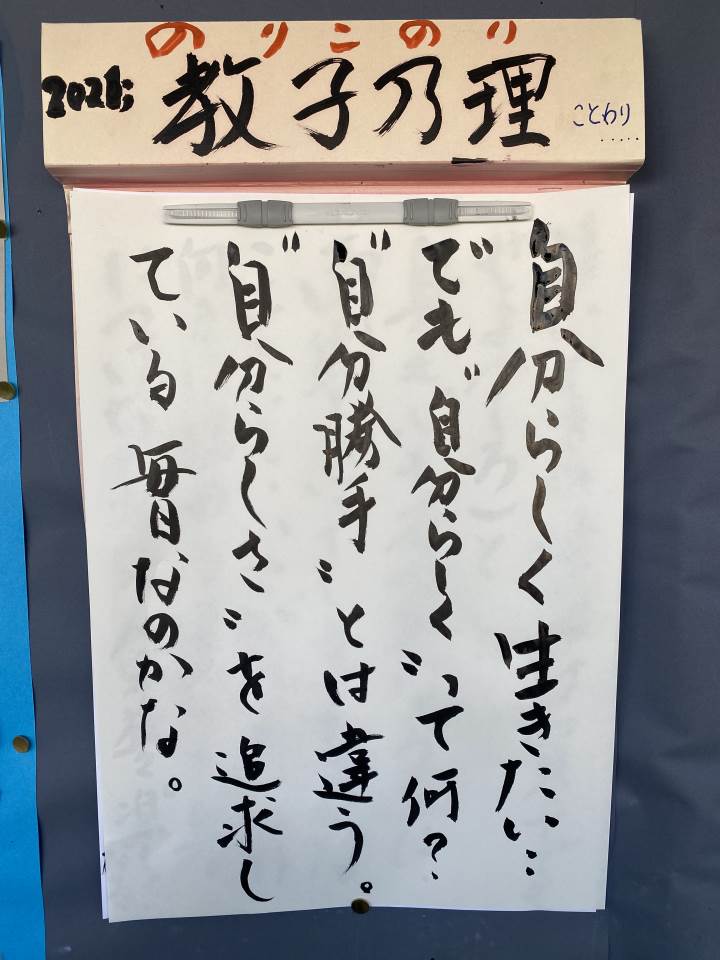 のりこのり
2026;
教子乃理
ことわり
.....
自分らしく生きたい…
でも〝自分らしく〟って何?
〝自分勝手〟とは違う。
〝自分らしさ〟を追求し
ている毎日なのかな。